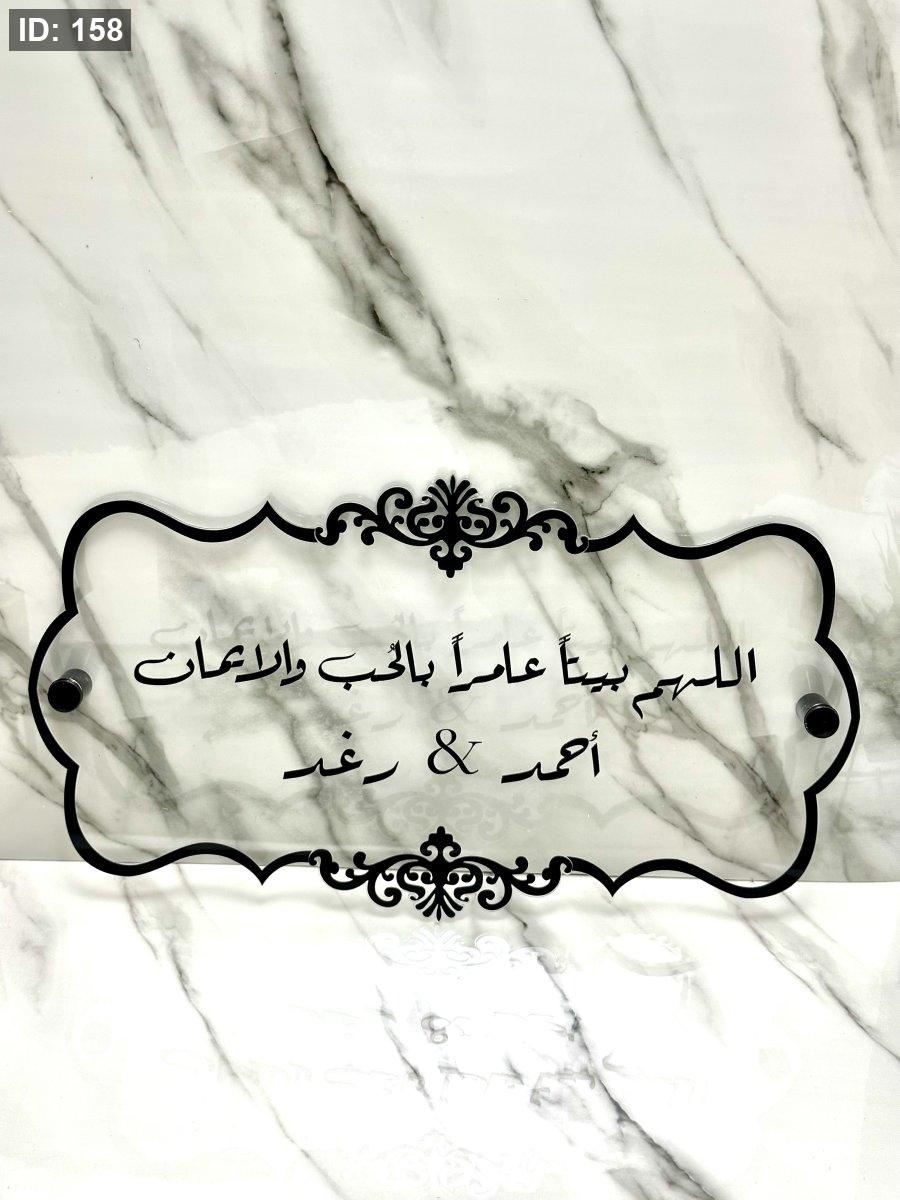 ID: 158
اللهم بيتاً عامراً بالحُب والايمان
أحمد & رغد